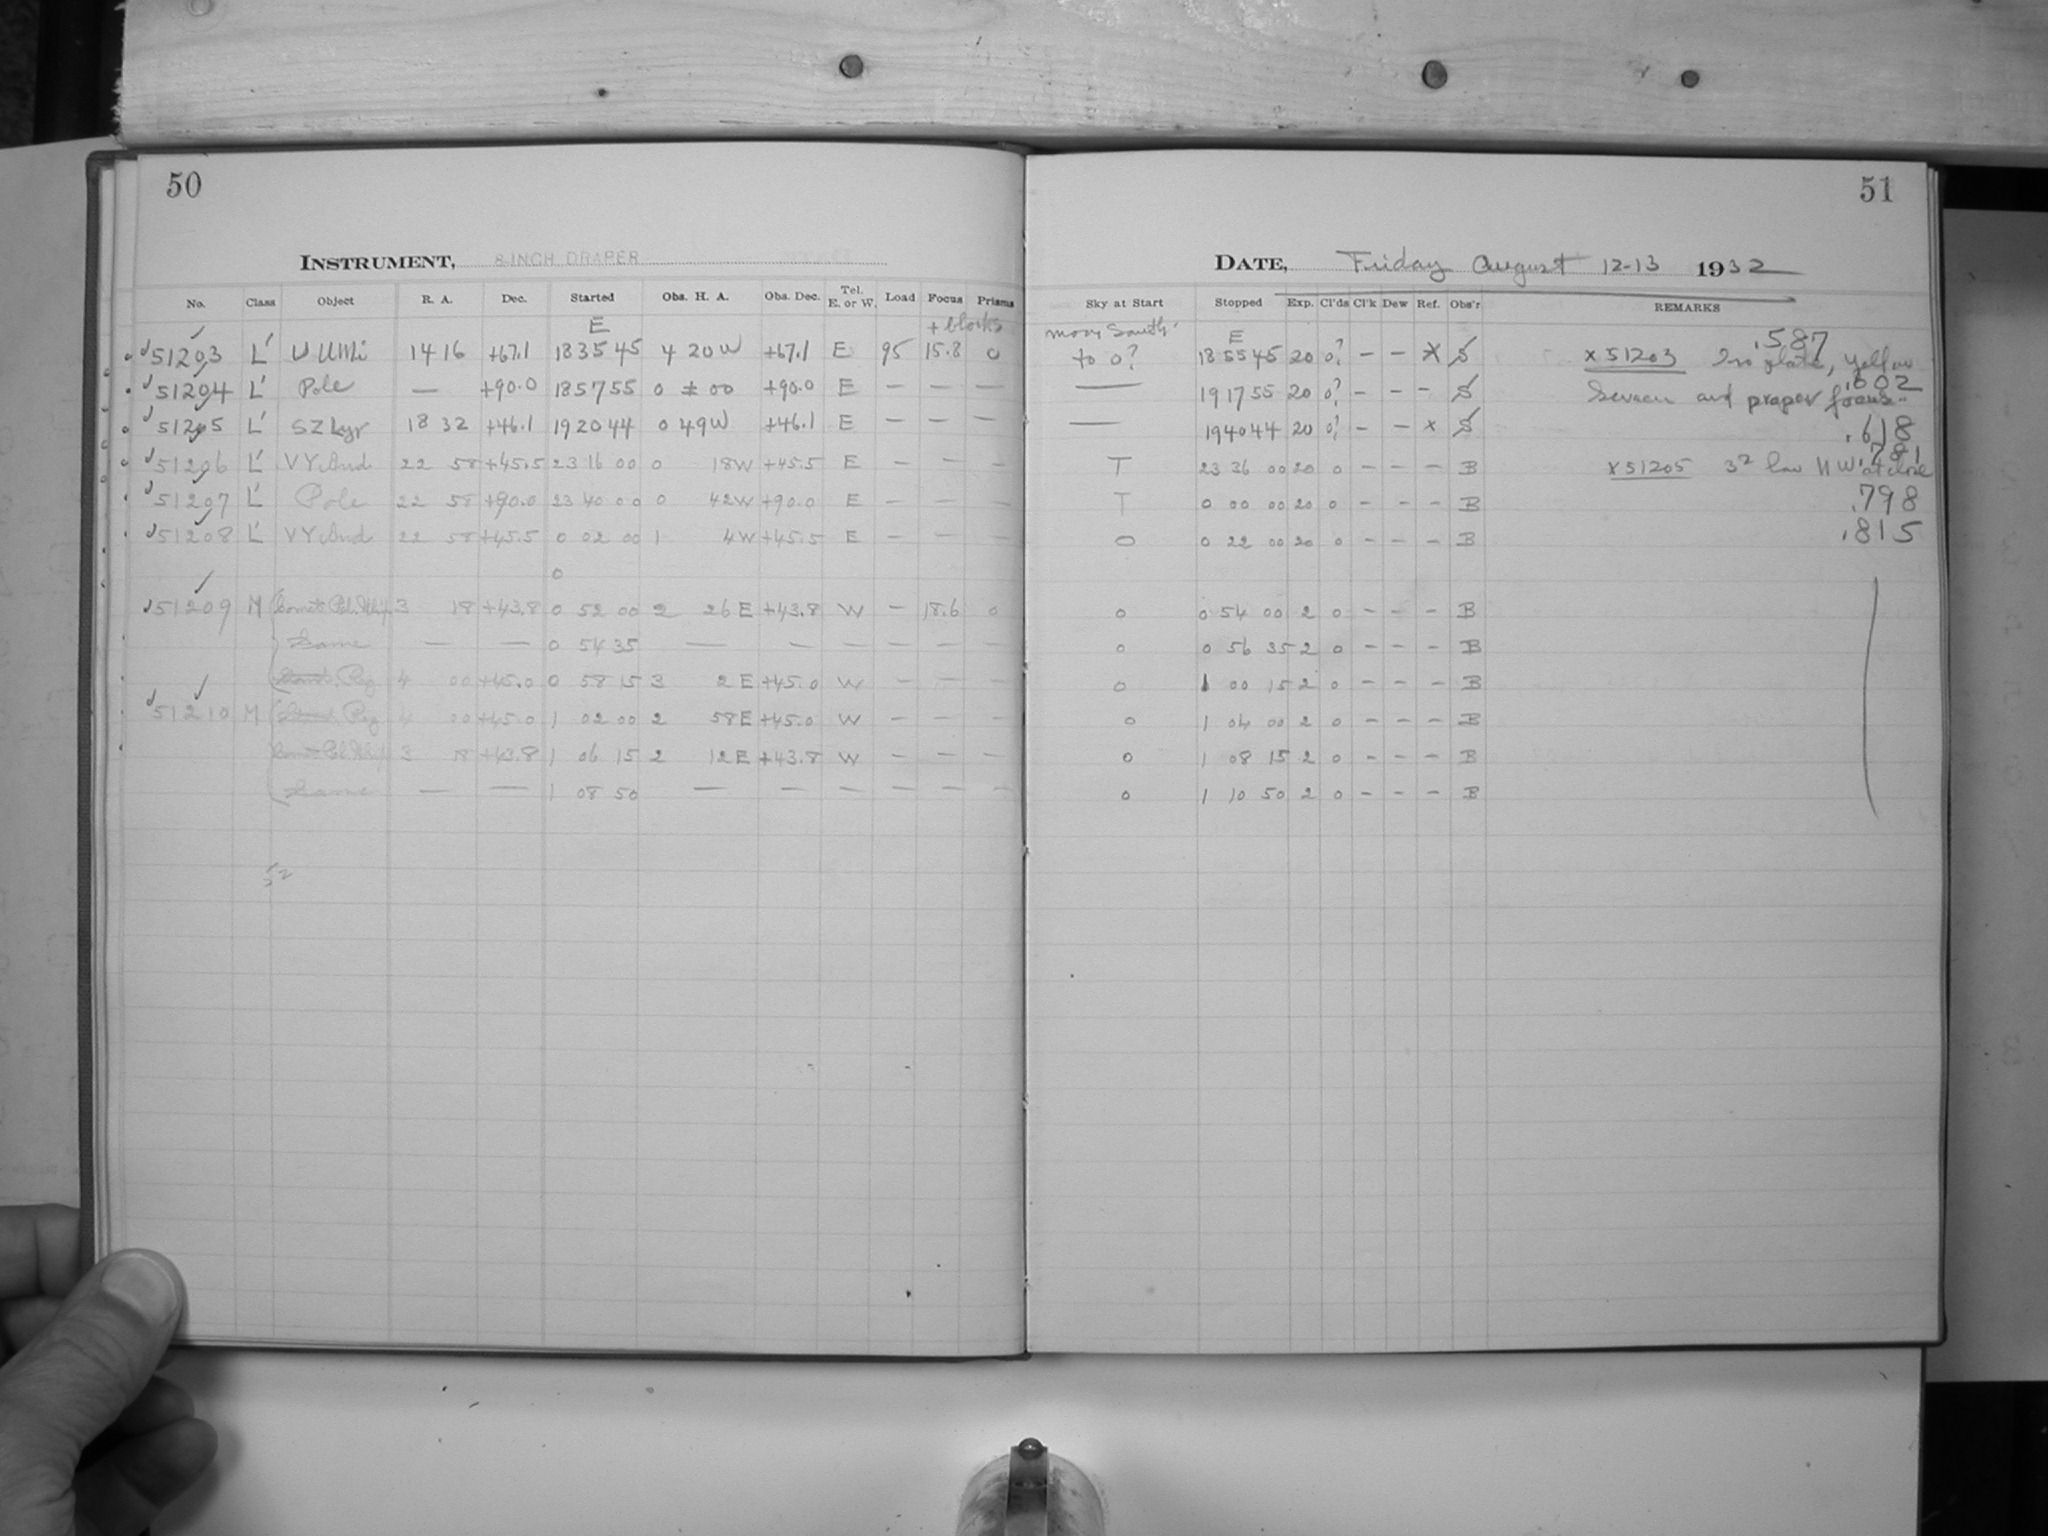 50
INSTRUMENT, 8-INCH DRAPER
No. Class Object R. A. Dec. Started Obs. H. A. Obs. Dec. Tel. E. or W. Load Focus Prisms
E + blocks
51203 L' U UMi 14 16 +67.1 18 35 45 4 20 W +67.1 E 95 15.8 0
51204 L' Pole — +90.0 18 57 55 0 ± 00 +90.0 E — — —
51205 L' SZ Lyr 18 32 +46.1 19 20 44 0 49 W +46.1 E — — —
51206 L' VY And 22 58 +45.5 23 16 00 0 18 W +45.5 E — — —
51207 L' Pole 22 58 +90.0 23 40 00 0 42 W +90.0 E — — —
51208 L' VY And 22 58 +45.5 0 02 00 1 4 W +45.5 E — — —
0
51209 M 3 18 +43.8 0 52 00 2 26 E +43.8 W — 18.6 0
Same — — 0 54 35 — — — — — —
Reg 4 00 +45.0 0 58 15 3 2 E +45.0 W — — —
51210 M Reg 4 00 +45.0 1 02 00 2 58 E +45.0 W — — —
3 18 +43.8 1 06 15 2 12 E +43.8 W — — —
Same — — 1 08 50 — — — — — —
52
51
DATE, Friday August 12-13 1932
Sky at Start Stopped Exp. Cl'ds Cl'k Dew Ref. Obs'r REMARKS
moon South E .587
to 0? 18 55 45 20 0? — — x S x 51203 Iso plate, yellow
— 19 17 55 20 0? — — — S Screen and proper focus. .602
— 19 40 44 20 0? — — x S .618
T 23 36 00 20 0 — — — B x 51205 low NW at close .781
T 0 00 00 20 0 — — — B .798
0 0 22 00 20 0 — — — B .815
0 0 54 00 2 0 — — — B
0 0 56 35 2 0 — — — B
0 1 00 15 2 0 — — — B
0 1 04 00 2 0 — — — B
0 1 08 15 2 0 — — — B
0 1 10 50 2 0 — — — B